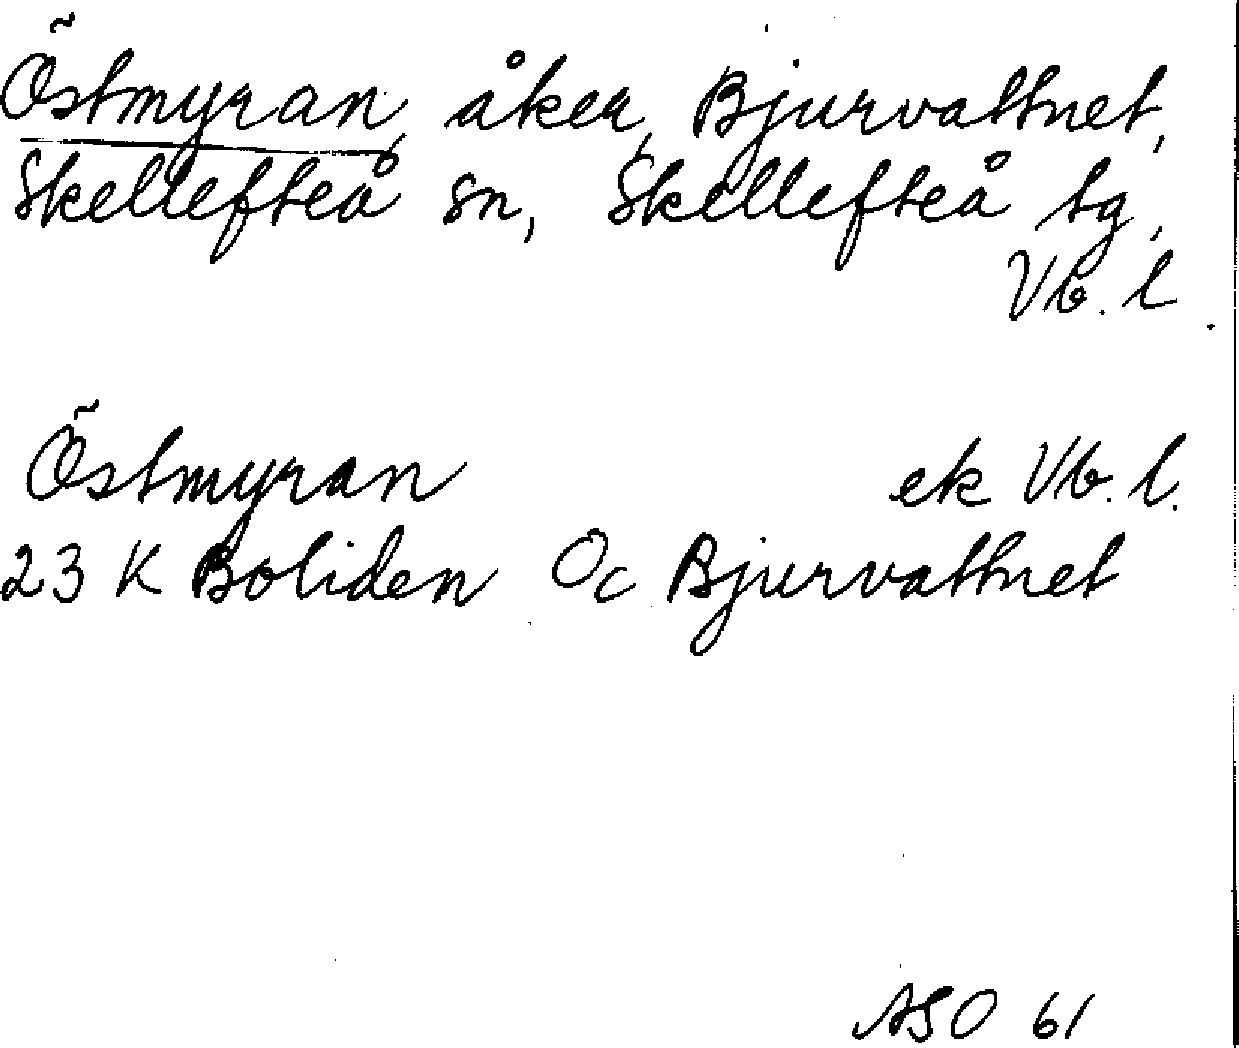 Östmyran, åker, Bjurvattnet,
Skellefteå sn, Skellefteå tg,
Vb. l.
Östmyran ek Vb. l.
23 K Boliden Oc Bjurvattnet
ASO 61